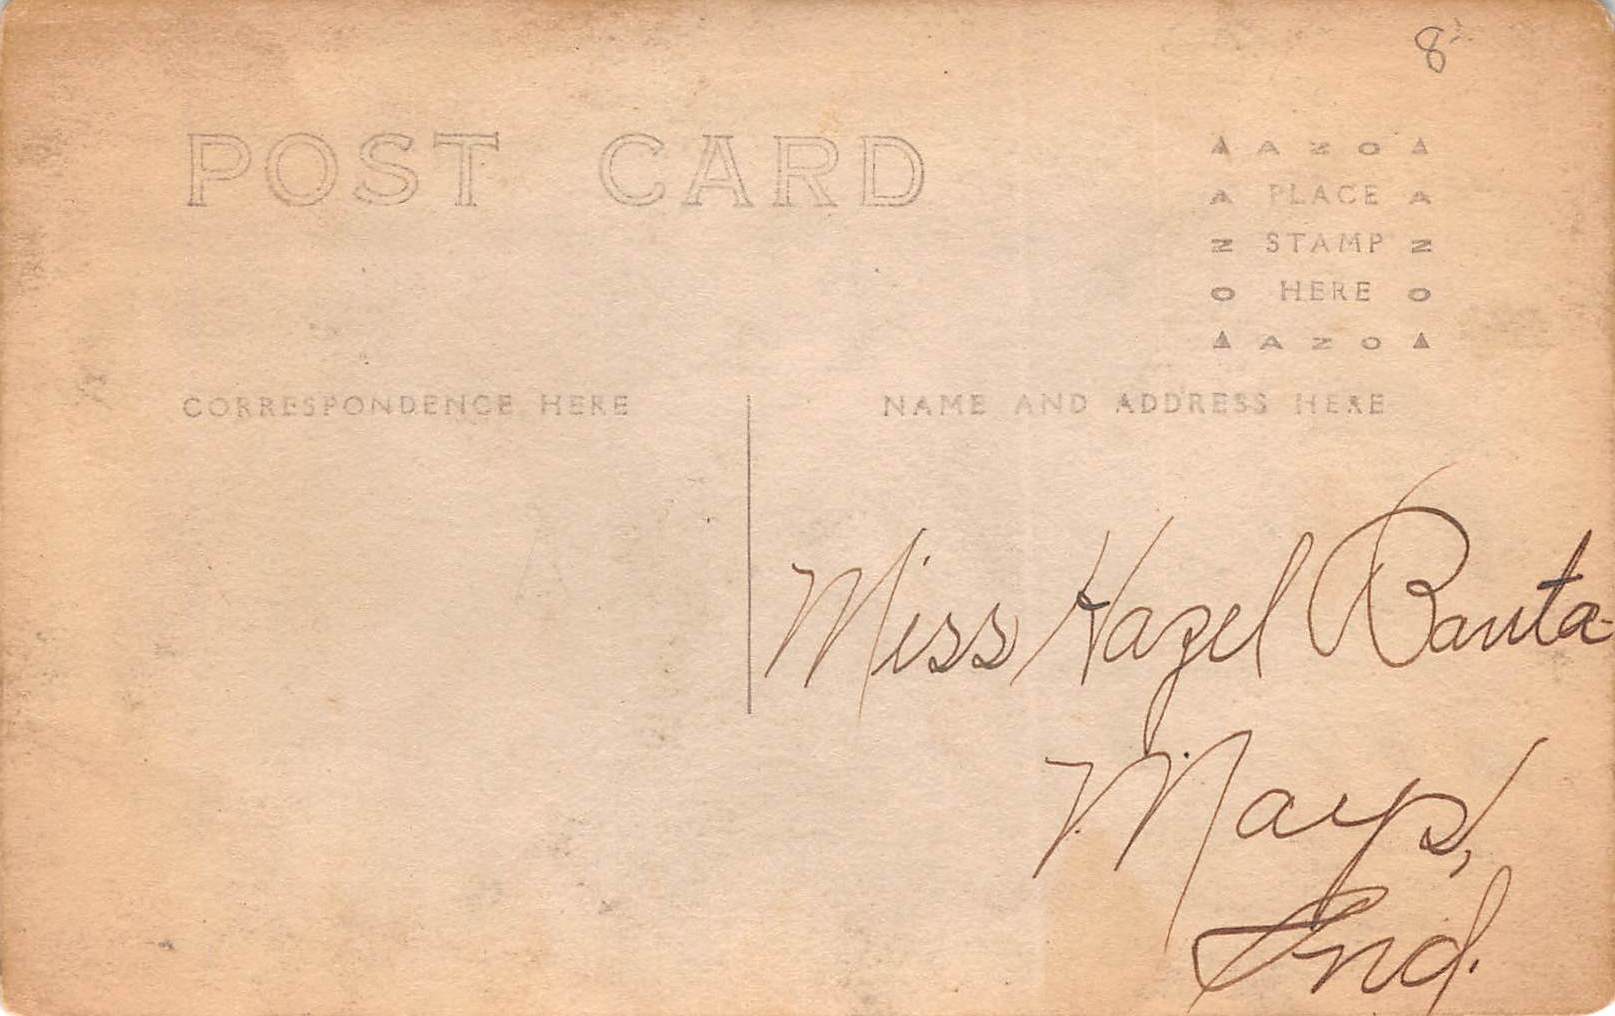 8
POST CARD
▲ A Z O ▲
A PLACE A
Z STAMP Z
O HERE O
▲ A Z O ▲
CORRESPONDENCE HERE
NAME AND ADDRESS HERE
Miss Hazel Banta
Mays,
Ind.